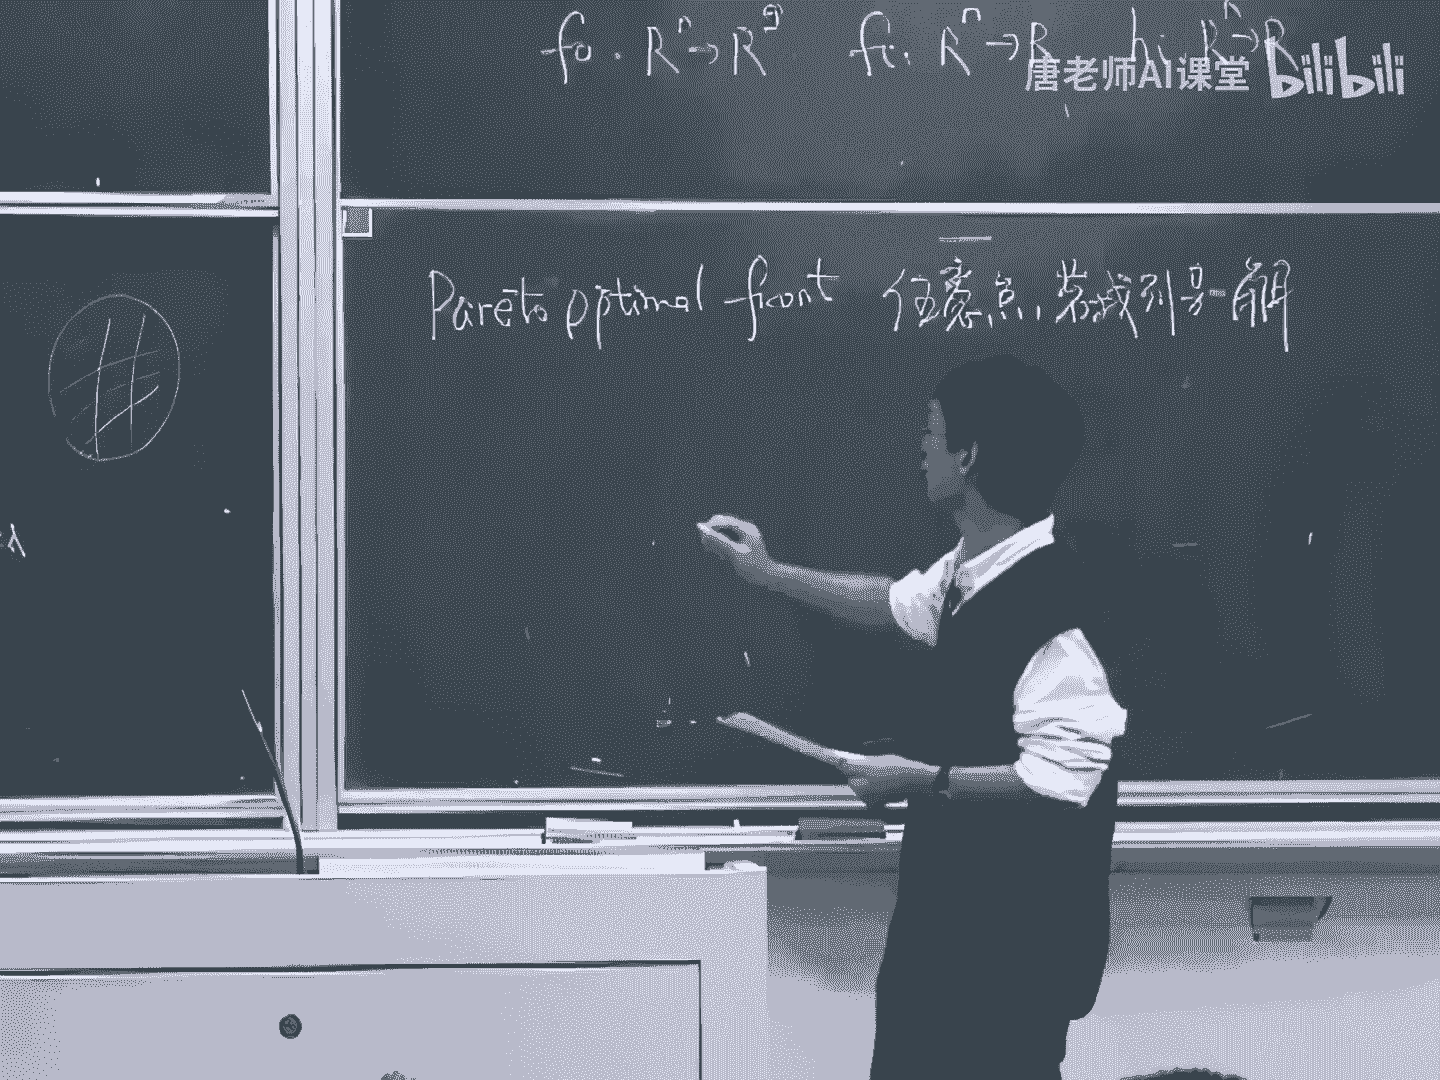 f₀: Rⁿ→R^q fᵢ: Rⁿ→R hᵢ: Rⁿ→R
唐老师AI课堂 bilibili
Pareto optimal front 任意点,若找到另一解
λ